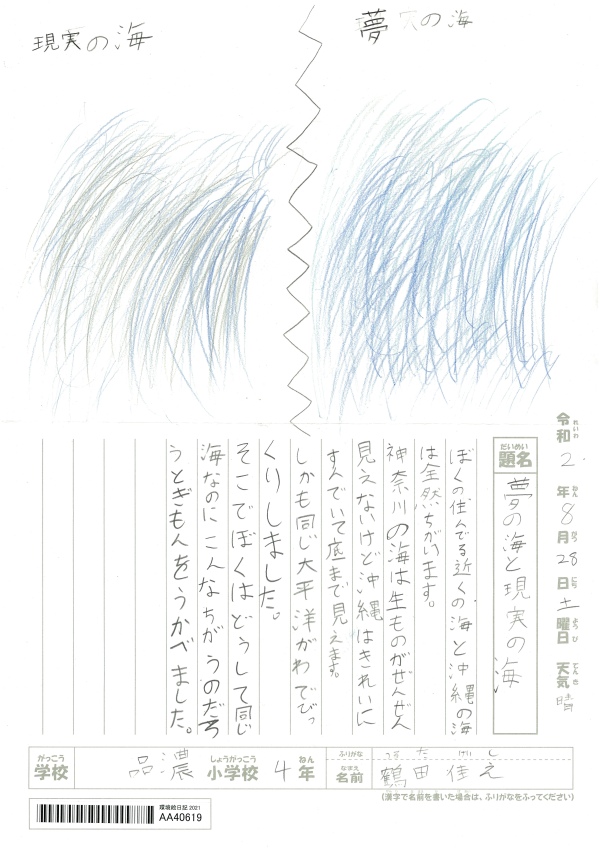 現実の海
夢の海
令和2年8月28日土曜日 天気晴
れいわ ねん がつ にち ようび てんき
だいめい
題名
夢の海と現実の海
ぼくの住んでる近くの海と沖縄の海
は全然ちがいます。
神奈川の海は生ものがぜんぜん
見えないけど沖縄はきれいに
すんでいて底まで見えます。
しかも同じ大平洋がわでびっ
くりしました。
そこでぼくはどうして同じ
海なのにこんなちがうのだろ
うとぎもんをうかべました。
がっこう しょうがっこう ねん
学校 品濃 小学校 4年
ふりがな た けい
なまえ
名前 鶴田佳え
(漢字で名前を書いた場合は、ふりがなをふってください)
環境絵日記2021
AA40619